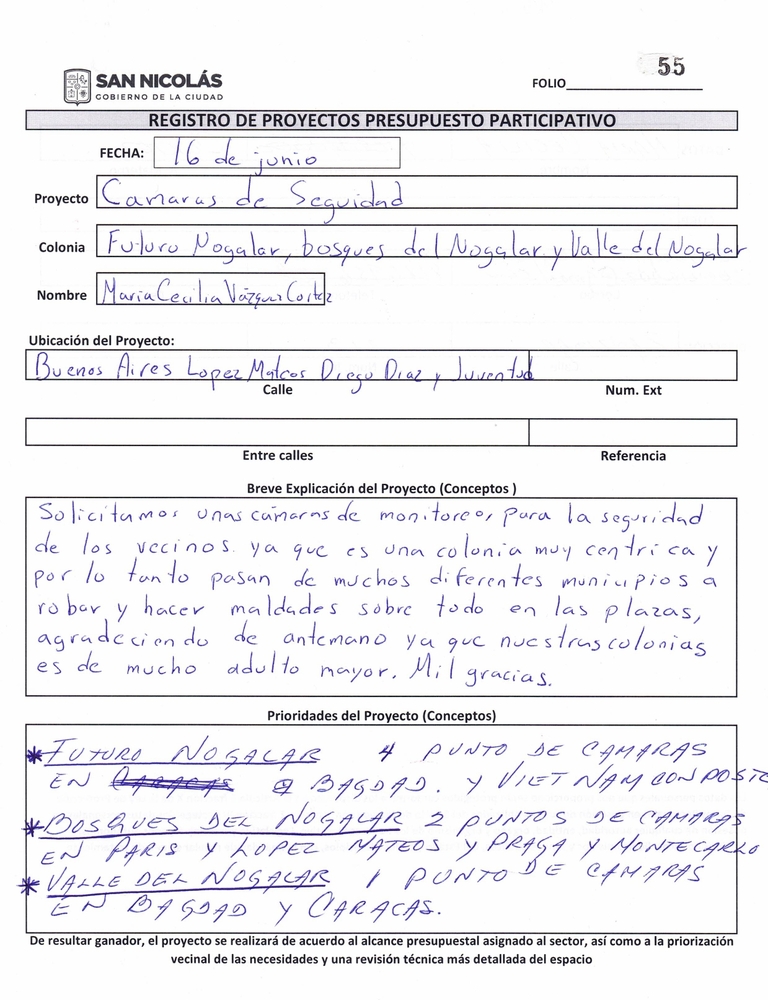 SAN NICOLÁS
GOBIERNO DE LA CIUDAD
FOLIO 55
REGISTRO DE PROYECTOS PRESUPUESTO PARTICIPATIVO
FECHA: 16 de junio
Proyecto Camaras de Seguidad
Colonia Futuro Nogalar, bosques del Nogalar y Valle del Nogalar
Nombre Maria Cecilia Vázquez Cortez
Ubicación del Proyecto:
Buenos Aires Lopez Mateos Diego Diaz y Juventud
Calle Num. Ext
Entre calles Referencia
Breve Explicación del Proyecto (Conceptos )
Solicitamos unas cámaras de monitoreo, para la seguridad
de los vecinos. ya que es una colonia muy centrica y
por lo tanto pasan de muchos diferentes municipios a
robar y hacer maldades sobre todo en las plazas,
agradeciendo de antemano ya que nuestras colonias
es de mucho adulto mayor. Mil gracias.
Prioridades del Proyecto (Conceptos)
* FUTURO NOGALAR 4 PUNTO DE CAMARAS
EN BAGDAD. Y VIETNAM CON POSTE
* BOSQUES DEL NOGALAR 2 PUNTOS DE CAMARAS
EN PARIS Y LOPEZ MATEOS Y PRAGA Y MONTECARLO
* VALLE DEL NOGALAR 1 PUNTO DE CAMARAS
EN BAGDAD Y CARACAS.
De resultar ganador, el proyecto se realizará de acuerdo al alcance presupuestal asignado al sector, así como a la priorización
vecinal de las necesidades y una revisión técnica más detallada del espacio